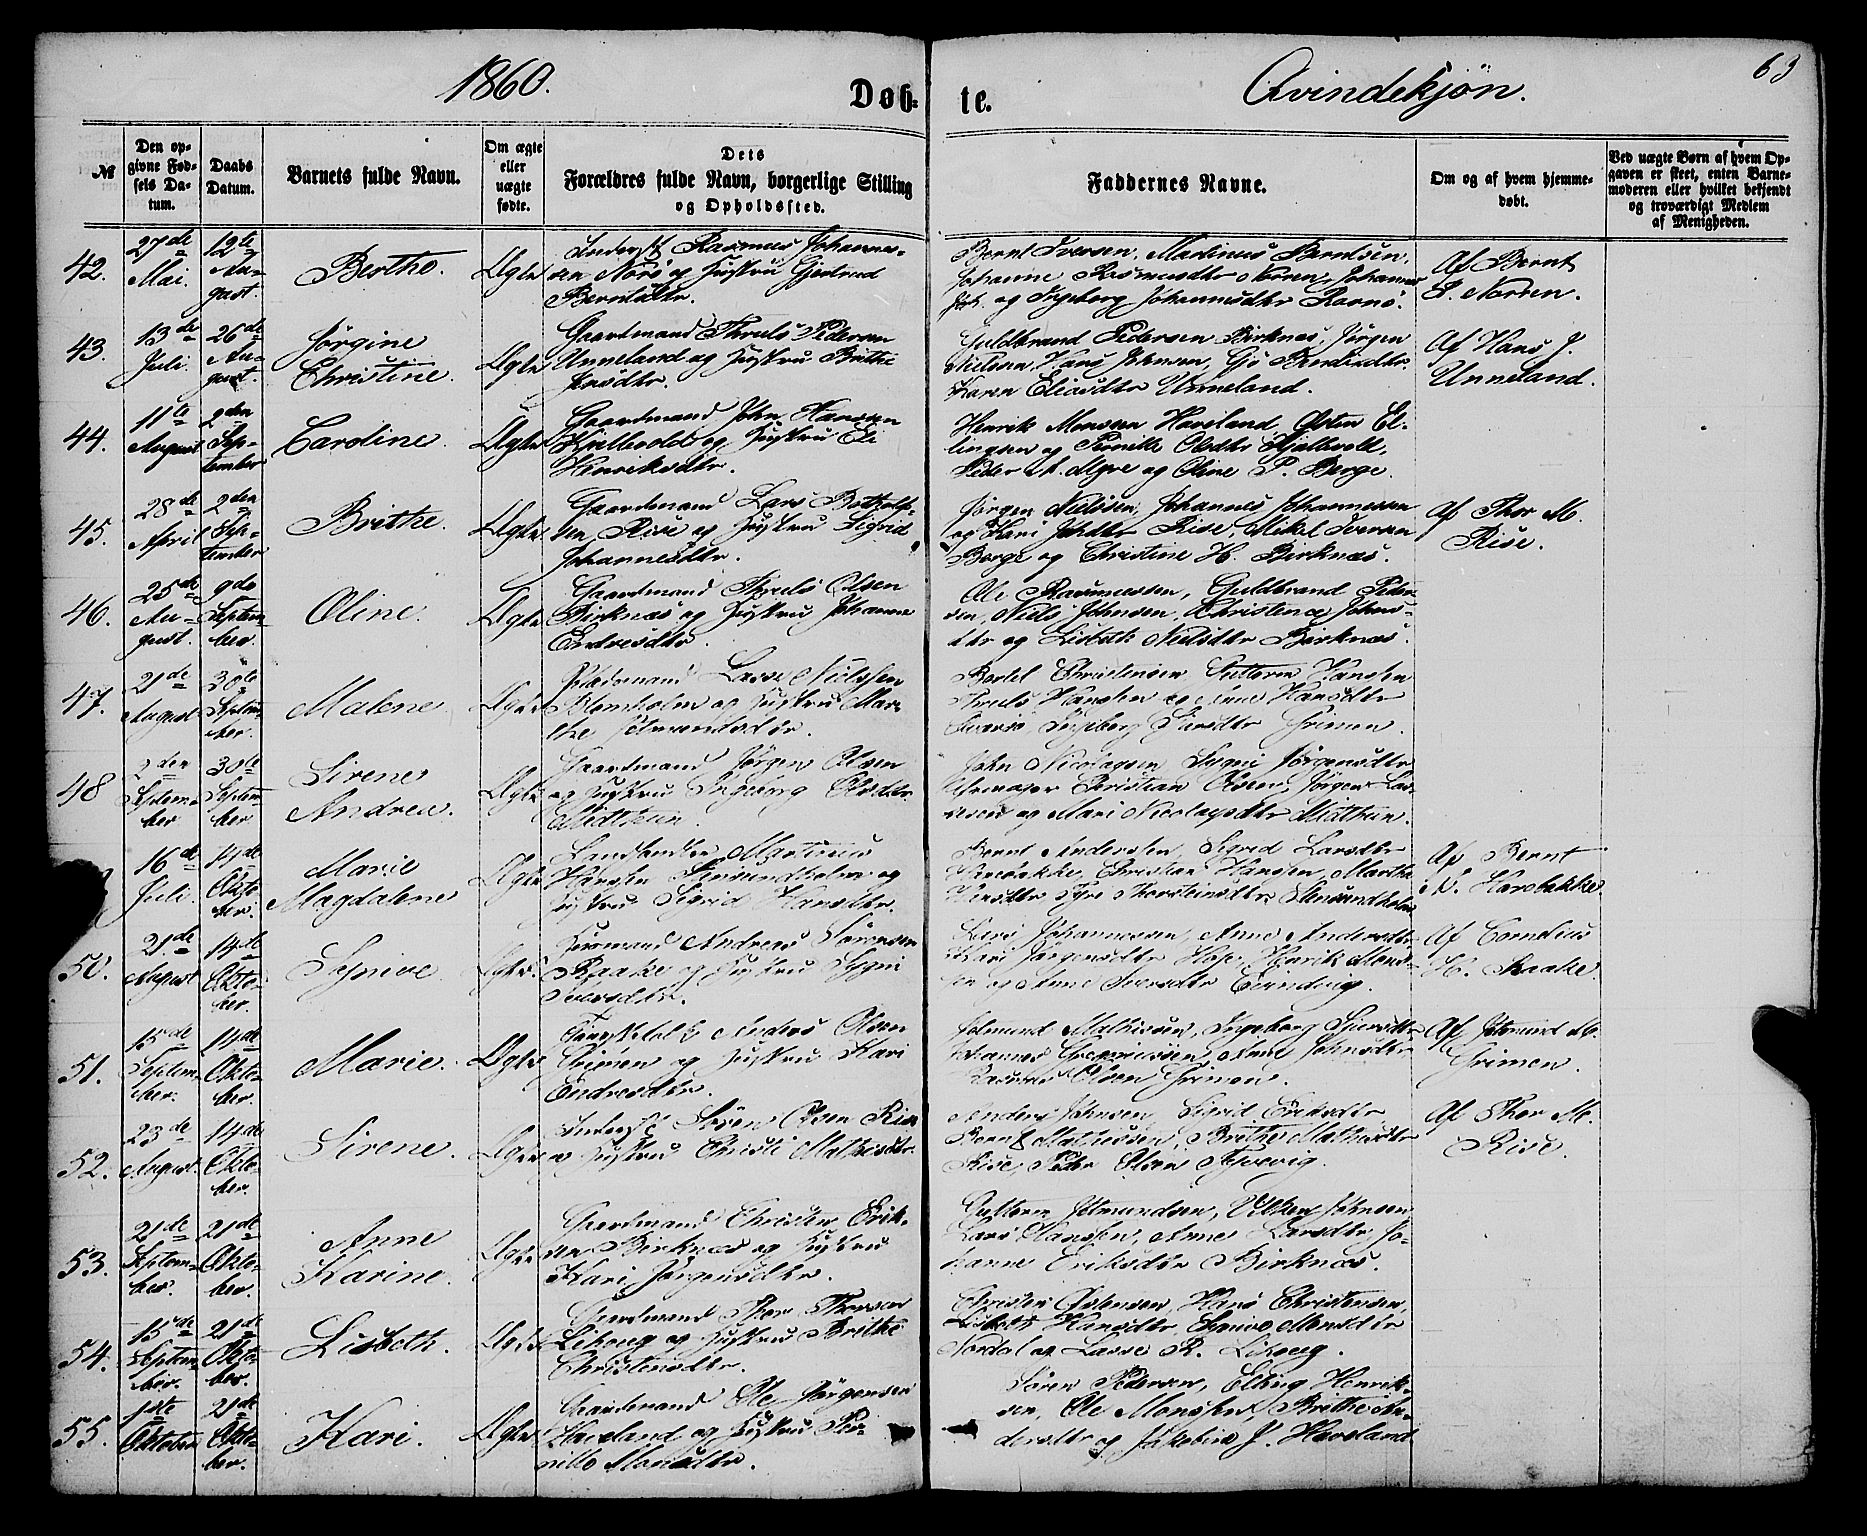 1860.
Døb-
te.
Qvindekjøn.
63
№
Den opgivne Fødsels Datum.
Daabs Datum.
Barnets fulde Navn.
Om ægte eller uægte fødte.
Dets Forældres fulde Navn, borgerlige Stilling og Opholdssted.
Faddernes Navne.
Om og af hvem hjemmedøbt.
Ved uægte Børn af hvem Opgaven er skeet, enten Barnemoderen eller hvilket bekjendt og troværdigt Medlem af Menigheden.
42.
27de Mai.
12te August.
Berthe.
Ægte
Inderst Rasmus Johannes-
sen Norø og Hustru Gjertrud
Berntsdtr.
Bernt Iversen, Martinus Berntsen,
Johanne Rasmusdtr Noreen, Johannes
og Ingeborg Johannesdtr Ravnø.
Af Bernt
Noreen.
43.
13de Juli.
26de August.
Jørgine
Christine.
Ægte
Gaardmand Thruls Pedersen
Unneland og Hustru Brithe
Guldbrand Pedersen Birknæs, Jørgen
Nielsen, Hans Johnsen,
Karen Eliasdtr Unneland.
Af Hans J.
Unneland.
44.
11te August
2den September
Caroline.
Ægte
Gaardmand John Hanssen
Hjellevold og Hustru Eli
Henriksdtr.
Henrik Monssen Haveland, Østen El-
lingsen og Pernille Olsdtr Hjellevold,
Peder A. Myre og Oline P. Berge.
45.
28de April
2den September
Brithe.
Ægte
Gaardmand Lars Botholf-
sen Rise og Hustru Sigrid
Johannesdtr.
Jørgen Nielssen, Johannes Johannessen
og Kari Rise, Mikel Iversen
Berge og Christine H. Birknæs.
Af Thor M.
Rise.
46.
25de August.
9de September.
Oline.
Ægte
Gaardmand Thruls Olsen
Birknæs og Hustru Johanne
Endresdtr.
Ole Rasmussen, Guldbrand Peder-
sen, Niels Johnsen, Christine Johns-
dtr og Lisbeth Nielsdtr Birknæs.
47.
21de August.
30te September.
Malene
Ægte
Pladsmand Lasse Nielssen
Blomholm og Hustru Mar-
the
Bertel Christensen, Guttorm Hanssen
Thruls Hanssen og Anne Hansdtr
Ingeborg Siursdtr Grimen.
48
2den September
30te September
Sirene
Andrea.
Ægte
Gaardmand Jørgen Olsen
og Hustru Ingeborg Olsdtr
Midttun.
John Nicolaysen, Sygni Jørgensdtr
Christian Olsen, Jørgen Las-
sesen og Mari Nicolaysdtr Midttun.
16de Juli
14de Oktober.
Marie
Magdalene
Ægte
Landhandler Martinus
Hanssen Stensundholm og
Hustru Sigrid Hansdtr.
Bernt Anderssen, Sigrid Larsdtr
Christian Hanssen, Marthe
Hansdtr, Thorsteinsdtr Stensundholm
Af Bernt
N. Harebakke.
50.
21de August
14de Oktober.
Synive
Ægte
Huusmand Andreas Sørensen
Raake og Hustru Sygni
Iversdtr.
Lars Johannessen, Anne Andersdtr
Kari Jørgensdtr Hope, Henrik Mons-
sen og Anne Iversdtr Evinding.
Af Cornelius
H. Raake.
51.
15de September.
14de Oktober.
Marie.
Ægte
Anders Olsen
Grimen og Hustru Kari
Endresdtr.
Jetmund Mathissen, Ingeborg Siursdtr
Johannes Anne Johnsdtr
Rasmus Olsen Grimen.
Af Jetmund M.
Grimen.
52.
23de August.
14de Oktober.
Sirene.
Ægte
Inderst Søren Olsen Rise
og Hustru Christi Mathisdtr.
Anders Johnsen, Sigrid Eriksdtr
Bernt Mathissen, Brithe Mathisdtr
Rise, Peder Olsen
Af Thor M.
Rise.
53.
21de September.
21de Oktober.
Anne
Karine.
Ægte
Gaardmand Christen Erik-
sen Birknæs og Hustru
Kari Jørgensdtr.
Guttorm Jetmundsen, Johnsen
Lars Hanssen, Anne Larsdtr, Jo-
hanne Eriksdtr Birknæs.
54.
15de September.
21de Oktober.
Lisbeth.
Ægte
Gaardmand Thor Thorsen
Lihoug og Hustru Brithe
Christensdtr.
Christen Østensen, Hans Christensen,
Lisbeth Hansdtr, Synive Monsdtr
Nordal og Lasse R. Lihoug.
55.
1ste Oktober
21de Oktober.
Kari.
Ægte
Gaardmand Ole Jørgensen
Haveland og Hustru Per-
nille Monsdtr.
Søren Pedersen, Elling Henrik-
sen, Ole Monssen, Brithe An-
dersdtr og Jakobine J. Haveland